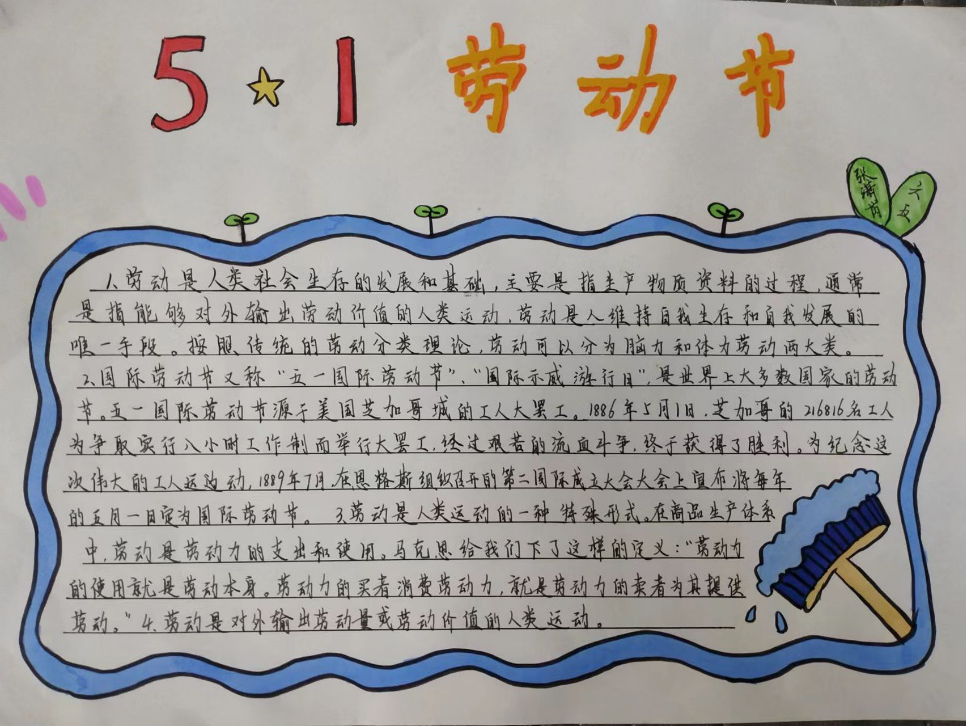 5★1 劳动节
张满芮
六五
1.劳动是人类社会生存的发展和基础，主要是指生产物质资料的过程，通常
是指能够对外输出劳动价值的人类运动，劳动是人维持自我生存和自我发展的
唯一手段。按照传统的劳动分类理论，劳动可以分为脑力和体力劳动两大类。
2.国际劳动节又称“五一国际劳动节”、“国际示威游行日”，是世界上大多数国家的劳动
节。五一国际劳动节源于美国芝加哥城的工人大罢工。1886年5月1日，芝加哥的216816名工人
为争取实行八小时工作制而举行大罢工，经过艰苦的流血斗争，终于获得了胜利。为纪念这
次伟大的工人运动，1889年7月，在恩格斯组织召开的第二国际成立大会大会上宣布将每年
的五月一日定为国际劳动节。 3.劳动是人类运动的一种特殊形式。在商品生产体系
中，劳动是劳动力的支出和使用。马克思给我们下了这样的定义：“劳动力
的使用就是劳动本身。劳动力的买者消费劳动力，就是劳动力的卖者为其提供
劳动。”4.劳动是对外输出劳动量或劳动价值的人类运动。